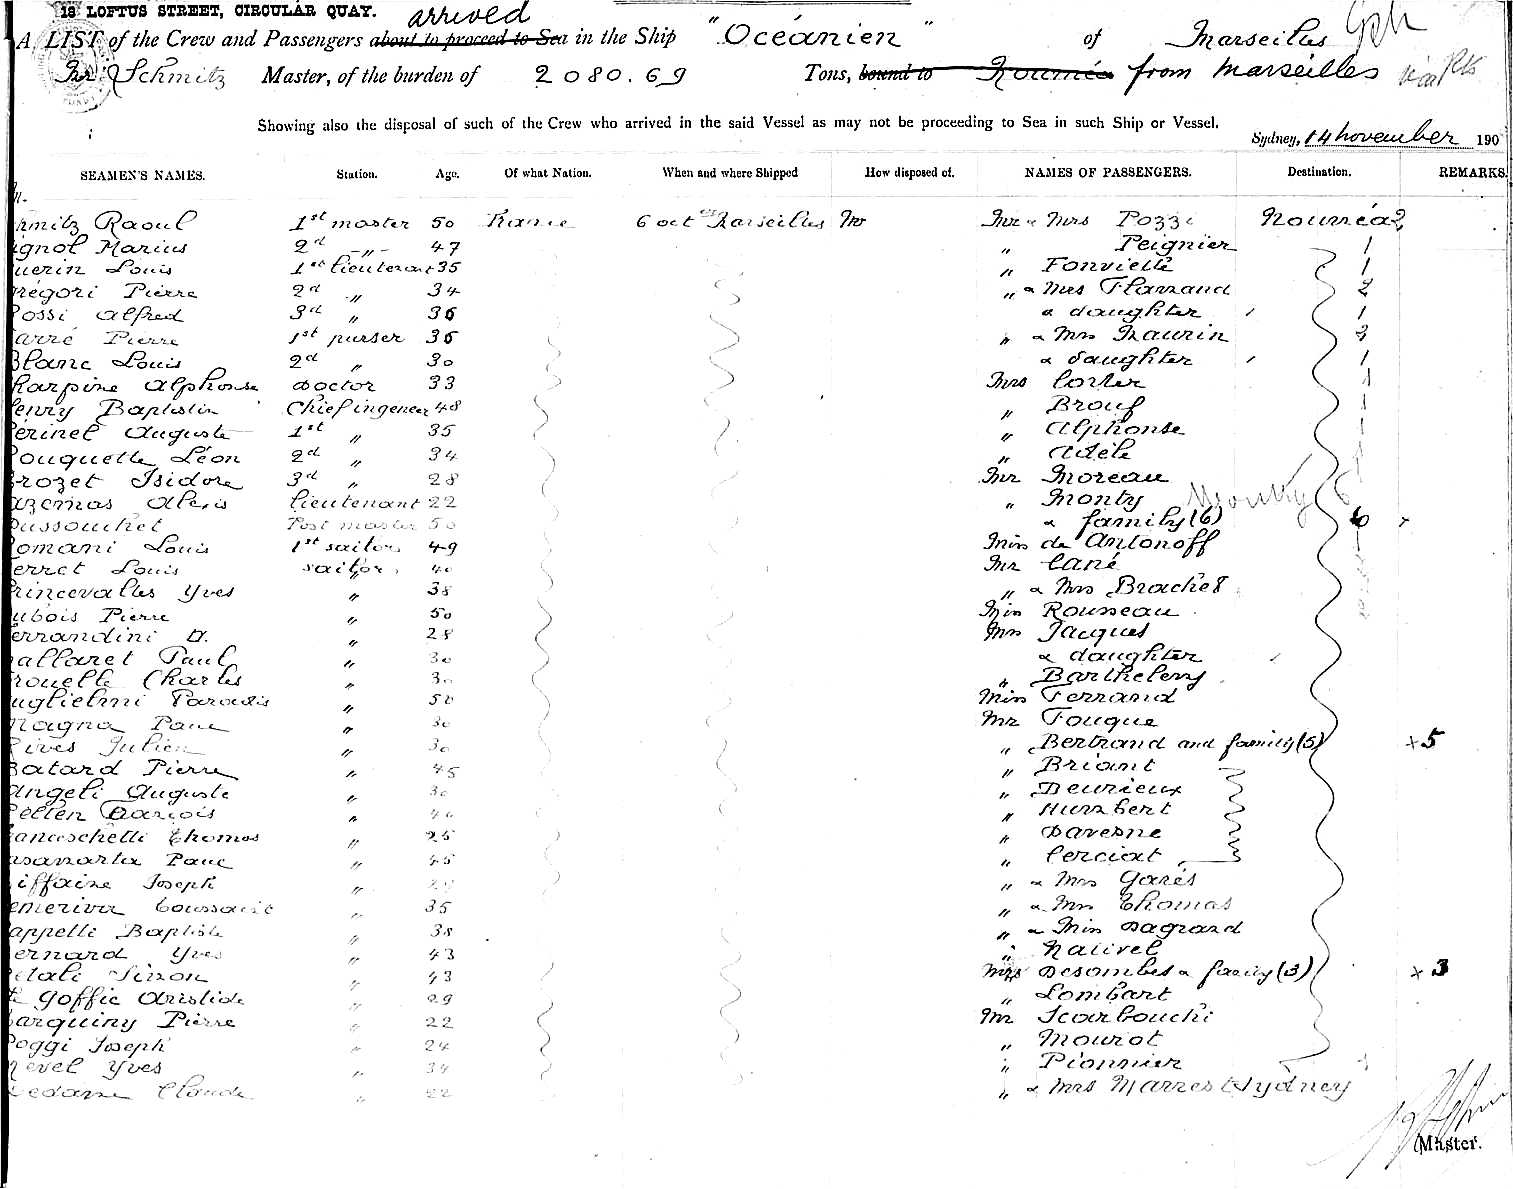 13 LOFTUS STREET, CIRCULAR QUAY.
arrived
A LIST of the Crew and Passengers about to proceed to Sea in the Ship "Océanien" of Marseilles
Mr Schmitz Master, of the burden of 2080.69 Tons, bound to Nouméa from Marseilles via Pts
Showing also the disposal of such of the Crew who arrived in the said Vessel as may not be proceeding to Sea in such Ship or Vessel.
Sydney, 14 November 190
SEAMEN'S NAMES. Station. Age. Of what Nation. When and where Shipped How disposed of. NAMES OF PASSENGERS. Destination. REMARKS.
hmitz Raoul 1st master 50 France 6 oct Marseilles Mr & Mrs Pozzi Nouméa 2
ignol Marius 2d -„- 47 „ Peignier 1
uerin Louis 1st lieutenant 35 „ Fonvielle 1
régori Pierre 2d „ 34 „ & Mrs Flarraud 2
ossi Alfred 3d „ 36 & daughter 1
arré Pierre 1st purser 36 „ & Mrs Laurin 2
Blanc Louis 2d „ 30 & daughter 1
harpine Alphonse Doctor 33 Mrs Corler 1
enry Baptistin Chief ingeneer 48 „ Brouf 1
érinel Auguste 1st „ 35 „ Alphonse
ouquette Léon 2d „ 34 „ Adèle
rozet Isidore 3d „ 28 Mr Moreau
azemas Alexis lieutenant 22 „ Monty Monty 6
ussouchet Post master 50 & family (6) 6
omani Louis 1st sailor 49 Miss de Antonoff
erret Louis sailor 40 Mr Cané
rincevalles Yves „ 38 „ & Mrs Brachet
ubois Pierre „ 50 Miss Rousseau
errandini D. „ 28 Mrs Jacques
allaret Paul „ 30 & daughter
rouelle Charles „ 30 „ Barthelemy
uglielmi Paradis „ 50 Miss Ferrand
magna Paul „ 30 Mr Fouque
Rives Julien „ 30 „ Bertrand and family (5) + 5
Batard Pierre „ 45 „ Briant
angeli Auguste „ 30 „ Deurieux
ellen François „ 40 „ Humbert
anceschetti Thomas „ 25 „ Davesne
asanarta Paul „ 45 „ Perciat
iffaine Joseph „ „ & Mrs Garès
Toussaint „ 35 „ & Mrs Thomas
appelli Baptiste „ 38 „ & Miss Dagrand
ernard Yves „ 43 „ Nauvel
itali Simon „ 43 Mrs Desombes & family (3) + 3
Le Goffic Aristide „ 29 „ Lombart
arquiny Pierre „ 22 Mr Scarbouchi
Poggi Joseph „ 24 „ Mourot
evel Yves „ 34 „ Pionnier
edane Claude „ 22 „ & Mrs Marres Sydney
Master.